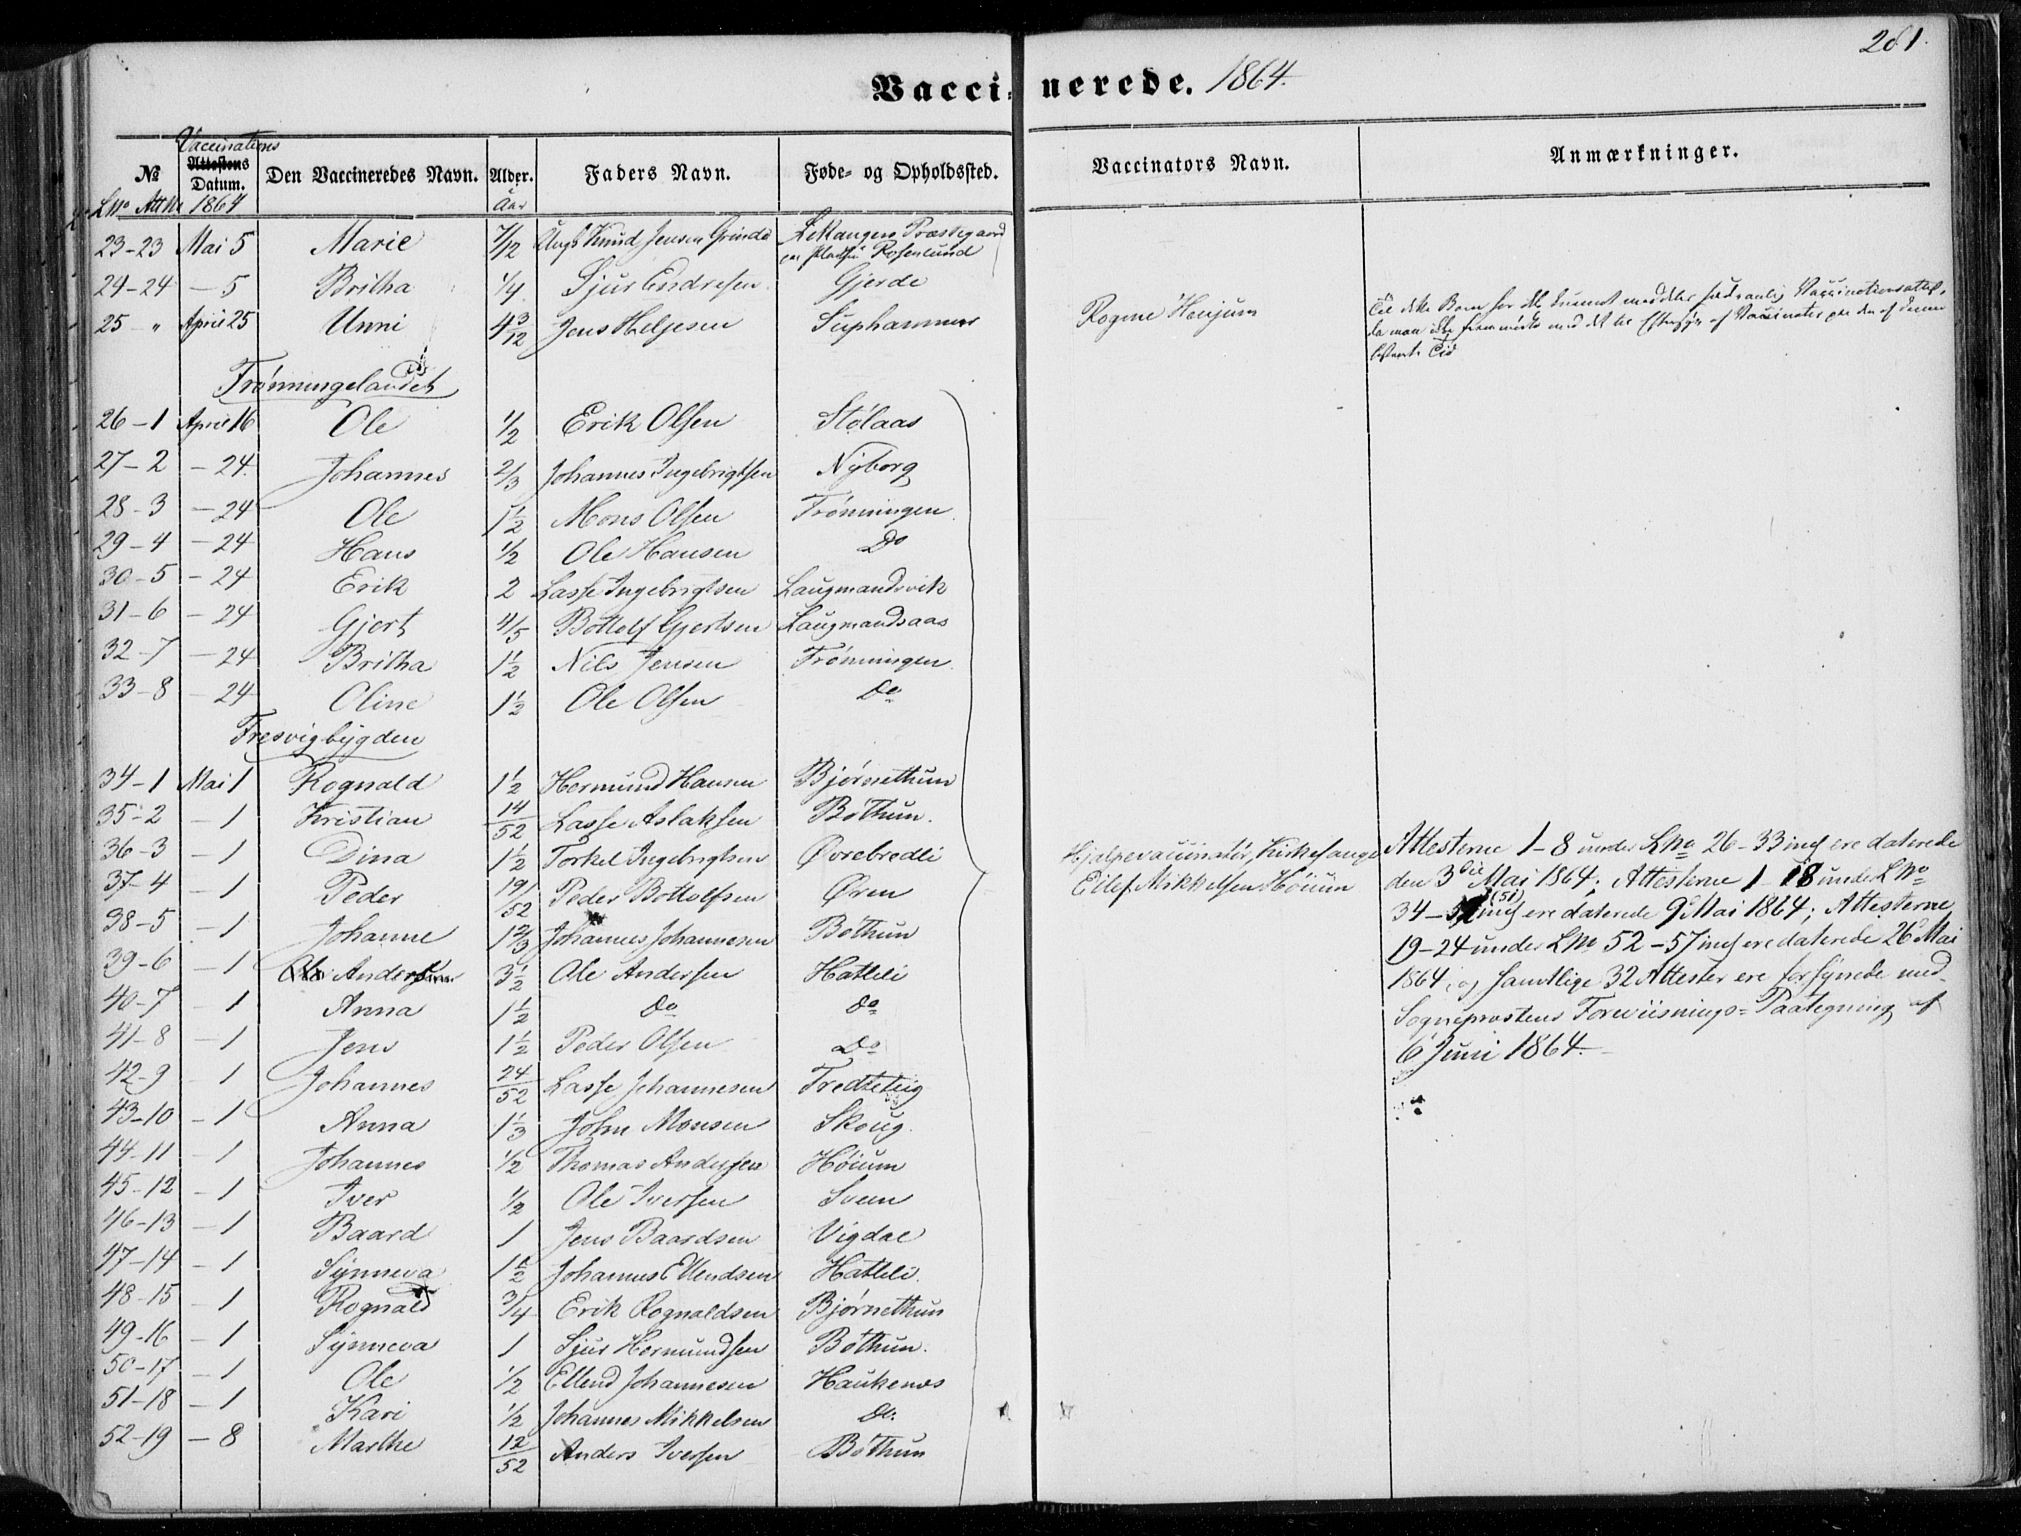 281.
Vaccinerede. 1864.
№ Vaccinations Attestens Datum. Den Vaccineredes Navn. Alder. Faders Navn. Føde- og Opholdssted. Vaccinators Navn. Anmærkninger.
L№ Att№ 1864 Aar
23-23 Mai 5 Marie 7/12 Knud Jensen Grinde Lekangers Præstegaard
Rosenlund
24-24 - 5 Britha 1/4 Sjur Endresen Gjerde
25 " April 25 Unni 4 3/12 Jens Heljesen Suphammer Rogne Henjum
Frønningelandet
26-1 April 16 Ole 1/2 Erik Olsen Stølaas
27-2 - 24. Johannes 2/3 Johannes Ingebrigtsen Nyborg
28-3 - 24 Ole 1 1/2 Mons Olsen Frønningen
29-4 - 24 Hans 1/2 Ole Hansen Do
30-5 - 24 Erik 2 Lasse Ingebrigtsen Laugmandsvik
31-6 - 24 Gjert 4/5 Bottolf Gjertsen Laugmandsaas
32-7 - 24 Britha 1 1/2 Nils Jensen Frønningen
33-8 - 24 Oline 1 1/2 Ole Olsen Do
Fresvigbygden
34-1 Mai 1 Rognald 1 1/2 Hermund Hansen Bjørnethun
35-2 - 1 Kristian 14/52 Lasse Aslaksen Bøthun.
36-3 - 1 Dina 1 1/2 Torkel Ingebrigtsen Øvrebredli
37-4 - 1 Peder 19/52 Peder Bottolfsen Øren
38-5 - 1 Johanne 1 2/3 Johannes Johannesen Bøthun
39-6 - 1 Ole Andersen 3 1/2 Ole Andersen Hatleli
40-7 - 1 Anna 1 1/2 Do Do
41-8 - 1 Jens 1 1/2 Peder Olsen Do
42-9 - 1 Johannes 24/52 Lasse Johannesen Tredteteig
43-10 - 1 Anna 1 1/3 John Monsen Skoug.
44-11 - 1 Johannes 1/2 Thomas Andersen Høium
45-12 - 1 Iver 1/2 Ole Iversen Svem
46-13 - 1 Baard 1 Jens Baardsen Vigdal
47-14 - 1 Synneva 1 1/2 Johannes Ellendsen Hatleli.
48-15 - 1 Rognald 3/4 Erik Rognaldsen Bjørnethun
49-16 - 1 Synneva 1 Sjur Hermundsen Bøthun.
50-17 - 1 Ole 1/2 Ellend Johannesen Haukenæs
51-18 - 1 Kari 1/2 Johannes Mikkelsen Do.
52-19 - 8 Marthe 12/52 Anders Iversen Bøthun
Hjelpevaccinatør, Kirkesanger
Eilef Mikkelsen Høium
Attesterne 1-8 under L№ 26-33 incl ere daterede
den 3die Mai 1864; Attesterne 1-18 under L№
34- (51) incl ere daterede 9 Mai 1864; Attesterne
19-24 under L№ 52-57 incl ere daterede 26 Mai
1864; og samtlige 32 Attester ere forsynede med
Sogneprestens Foreviisnings-Paategning af
6 Juni 1864.